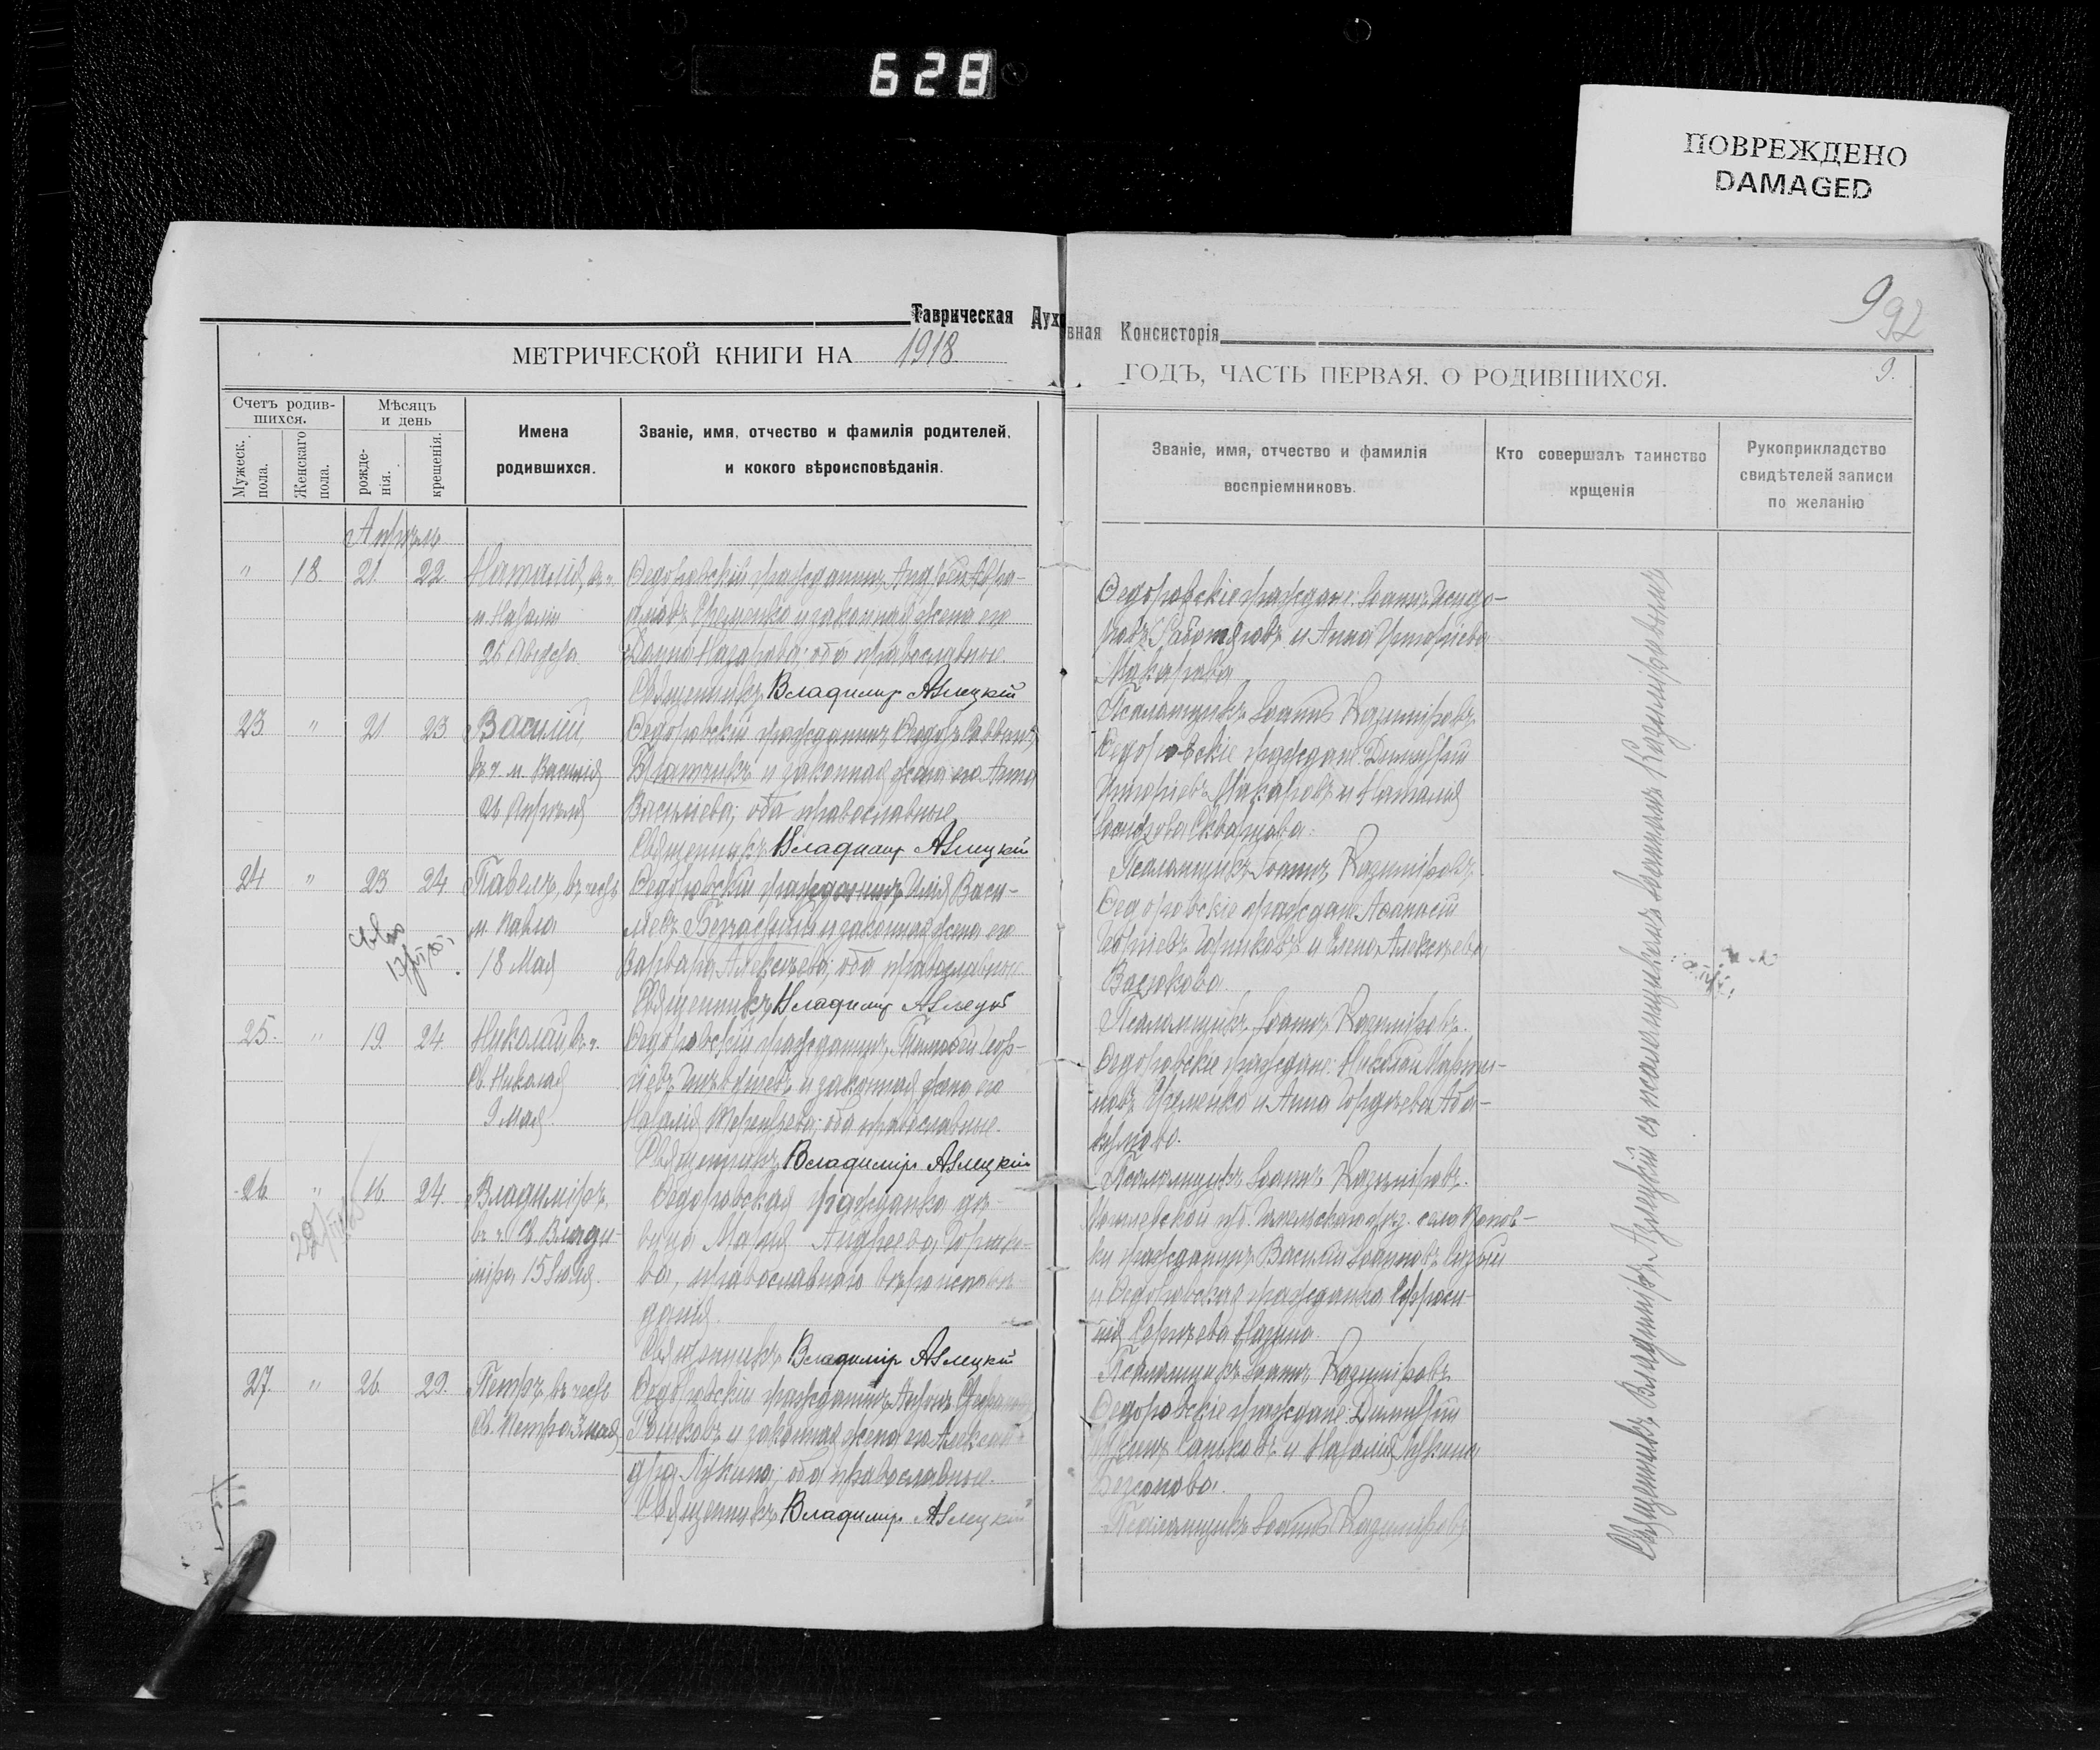 628
ПОВРЕЖДЕНО
DAMAGED
Таврическая Духовная Консисторія
992
МЕТРИЧЕСКОЙ КНИГИ НА 1918
ГОДЪ, ЧАСТЬ ПЕРВАЯ, О РОДИВШИХСЯ.
9.
Счетъ родив-
шихся.
Мужеск.
пола.
Женскаго
пола.
Мѣсяцъ
и день
рожде-
нія.
крещенія.
Имена
родившихся.
Званіе, имя, отчество и фамилія родителей,
и кокого вѣроисповѣданія.
Званіе, имя, отчество и фамилія
воспріемниковъ.
Кто совершалъ таинство
крщенія
Рукоприкладство
свидѣтелей записи
по желанію
Апрѣль
" 18 21. 22. Наталія, въ ч.
м. Наталіи
26 Августа.
Ѳедоровскій гражданинъ Андрей Авра-
амовъ Яременко и законная жена его
Назарова; оба православные.
Священникъ Владимір Азлецкій
Ѳедоровскіе граждане: Іоаннъ Исидо-
ровъ и Анна Григоріева
Макарова
Псаломщикъ Іоаннъ Казиміровъ
23. " 21. 23. Василій,
въ ч. м. Василія
26 Апрѣля
Ѳедоровскій гражданинъ Ѳеодоръ Саввинъ
и законная жена его Анна
Васильева; оба православные
Священникъ Владимір Азлецкій
Ѳедоровскіе граждане: Димитрій
Григоріевъ Макаровъ и Наталія
Іосифова
Псаломщикъ Іоаннъ Казиміровъ.
24 " 23 24. Павелъ, въ честь
м. Павла
18 Мая
Ѳедоровскій гражданинъ Илія Васи-
льевъ и законная жена его
Варвара Алексѣева; оба православные
Священникъ Владимір Азлецкій
Ѳедоровскіе граждане: Аѳанасій
Георгіевъ и Елена Алексѣева
Васюкова.
Псаломщикъ Іоаннъ Казиміровъ.
25. " 19. 24. Николай, въ ч.
Св. Николая
9 мая.
Ѳедоровскій гражданинъ Тимоѳей Геор-
гіевъ и законная жена его
Наталія Терентьева; оба православные.
Священникъ Владимір Азлецкій
Ѳедоровскіе граждане: Николай Марти-
новъ Яременко и Анна Гордѣева Аба-
кумова.
Псаломщикъ Іоаннъ Казиміровъ.
26. " 16. 24. Владиміръ,
въ ч. Св. Влади-
міра 15 Іюля.
Ѳедоровская гражданка дѣ-
вица Марія Андреева Горшко-
ва, православнаго вѣроисповѣ-
данія.
Священникъ Владимір Азлецкій
Могилевской губ. Гомельскаго уѣз. села Попов-
ки гражданинъ Василій Іоанновъ
и Ѳедоровская гражданка Евфроси-
нія Сергѣева
Псаломщикъ Іоаннъ Казиміровъ
27. " 26. 29. Петръ, въ честь
Св. Петра 3 мая
Ѳедоровскій гражданинъ
и законная жена его Алексан-
дра Лукина; оба православные.
Священникъ Владимір Азлецкій
Ѳедоровскіе граждане: Димитрій
и Наталія Лукина
Псаломщикъ Іоаннъ Казиміровъ
Священникъ Владиміръ Азлецкій съ псаломщикомъ Іоанномъ Казиміровымъ